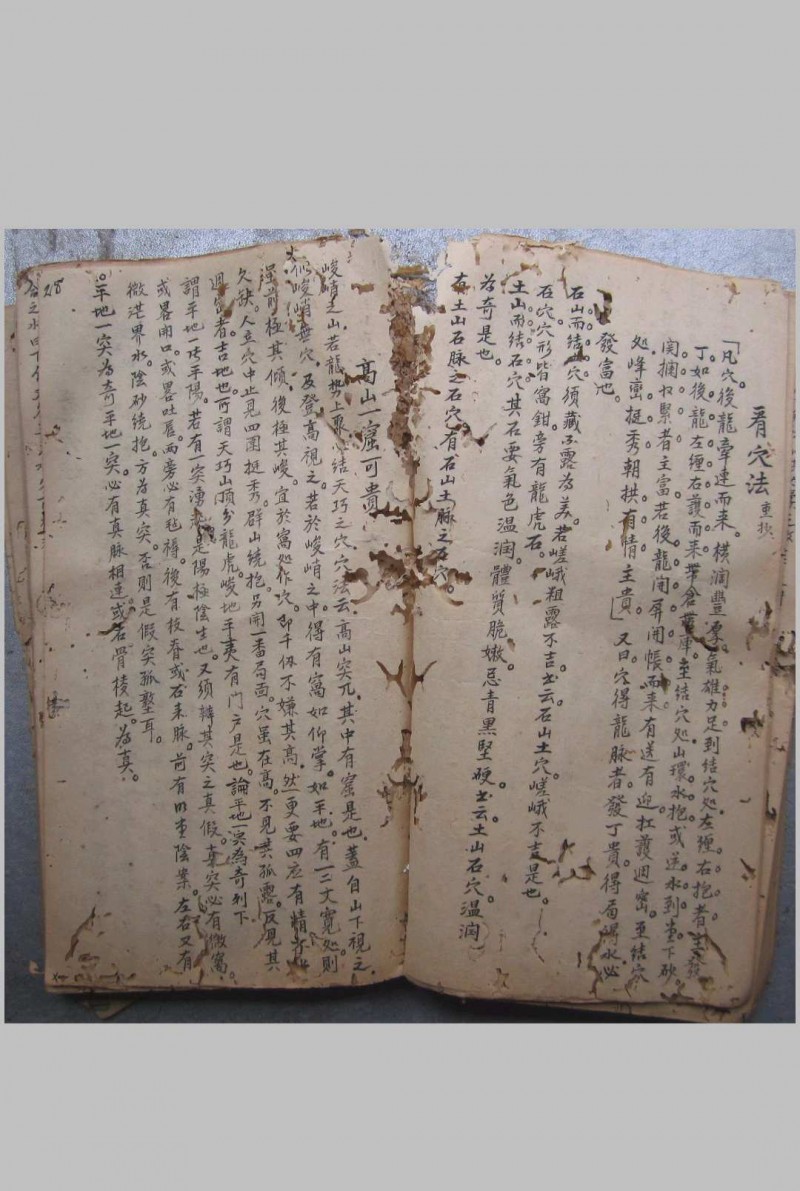 看穴法
「凡穴後龍牽連而来。橫濶豐厚。氣雄力足到結穴処。左纏右抱者主發
丁如後龍左纏右護而来帶倉帶庫。至结穴処山環水抱或逆水到堂下砂
関攔收緊者主富若後龍開屏開帳而来有送有迎扛護週密。至结穴
処峰巒挺秀朝拱有情主貴」又曰。穴得龍脉者發丁貴得局得水必
發富也。
石山而结穴須藏不露為美。若嵯峨粗露不吉書云。石山土穴。嵯峨不吉是也。
石穴穴形皆窩鉗。旁有龍虎石。
土山而结石穴其石要氣色温潤。體質脆嫩。忌青黑堅硬。書云土山石穴。温潤
為奇是也。
有土山石脉之石穴。有石山土脉之石穴。
高山一窟可貴
峻峭之山。若龍势上聚。心结天巧之穴。穴法云。高山突兀。其中有窟是也。蓋自山下視之。
似峻峭無穴。及登高視之。若於峻峭之中。得有窩如仰掌。如平地。有一二丈寛処。則
虽前極其傾。後極其峻。宜於窩処作穴。即千仭不嫌其高。然更要四应有情
人立穴中止見四圍挺秀。群山繞抱。另開一番局面。穴虽在高。不見其孤露。反見其
週密者。吉地也。可謂天巧山頂分龍虎峻地平夷有门户是也。論平地一突為奇列下
謂平地一片平陽。若有一突湧起。是陽極陰生也。又须辨其突之真假。真突必有微窩。
或畧開口。或畧吐唇。兩旁必有毬褥後有枝脊或石来脉。前有明堂陰案。左右又有
微茫界水。陰砂繞抱。方為真突。否則是假突孤墪耳。
平地一突為奇平地一突。必有真脉相連。或石骨棱起。為真。
28